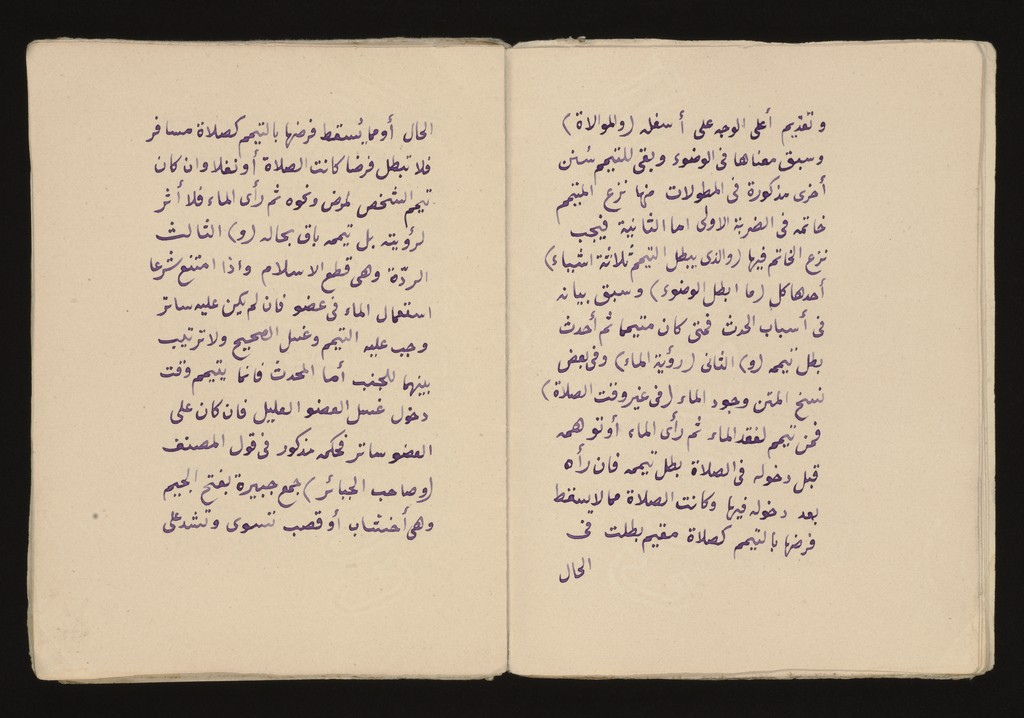 وتقديم أعلى الوجه على أسفله (والموالاة)
وسبق معناها فى الوضوء وبقى للتيمم سُنن
أخرى مذكورة فى المطولات منها نزع المتيمم
خاتمه فى الضربة الاولى اما الثانية فيجب
نزع الخاتم فيها (والذى يبطل التيمم ثلاثة اشياء)
أحدها كل (ما ابطل الوضوء) وسبق بيانه
فى أسباب الحدث فمتى كان متيمما ثم أحدث
بطل تيممه (و) الثانى (رؤية الماء) وفى بعض
نسخ المتن وجود الماء (فى غير وقت الصلاة)
فمن تيمم لفقد الماء ثم رأى الماء أو توهمه
قبل دخوله فى الصلاة بطل تيممه فان رآه
بعد دخوله فيها وكانت الصلاة مما لا يسقط
فرضها بالتيمم كصلاة مقيم بطلت فى
الحال
الحال أو مما يُسقط فرضها بالتيمم كصلاة مسافر
فلا تبطل فرضا كانت الصلاة أو نفلا وان كان
تيمم الشخص لمرض ونحوه ثم رأى الماء فلا أثر
لرؤيته بل تيممه باق بحاله (و) الثالث
الردّة وهى قطع الاسلام واذا امتنع شرعا
استعمال الماء فى عضو فان لم يكن عليه ساتر
وجب عليه التيمم وغسل الصحيح ولا ترتيب
بينهما للجنب أما المحدث فانما يتيمم وقت
دخول غسل العضو العليل فان كان على
العضو ساتر فحكمه مذكور فى قول المصنف
(وصاحب الجبائر) جمع جبيرة بفتح الجيم
وهى أخشاب أو قصب تسوى وتشد على